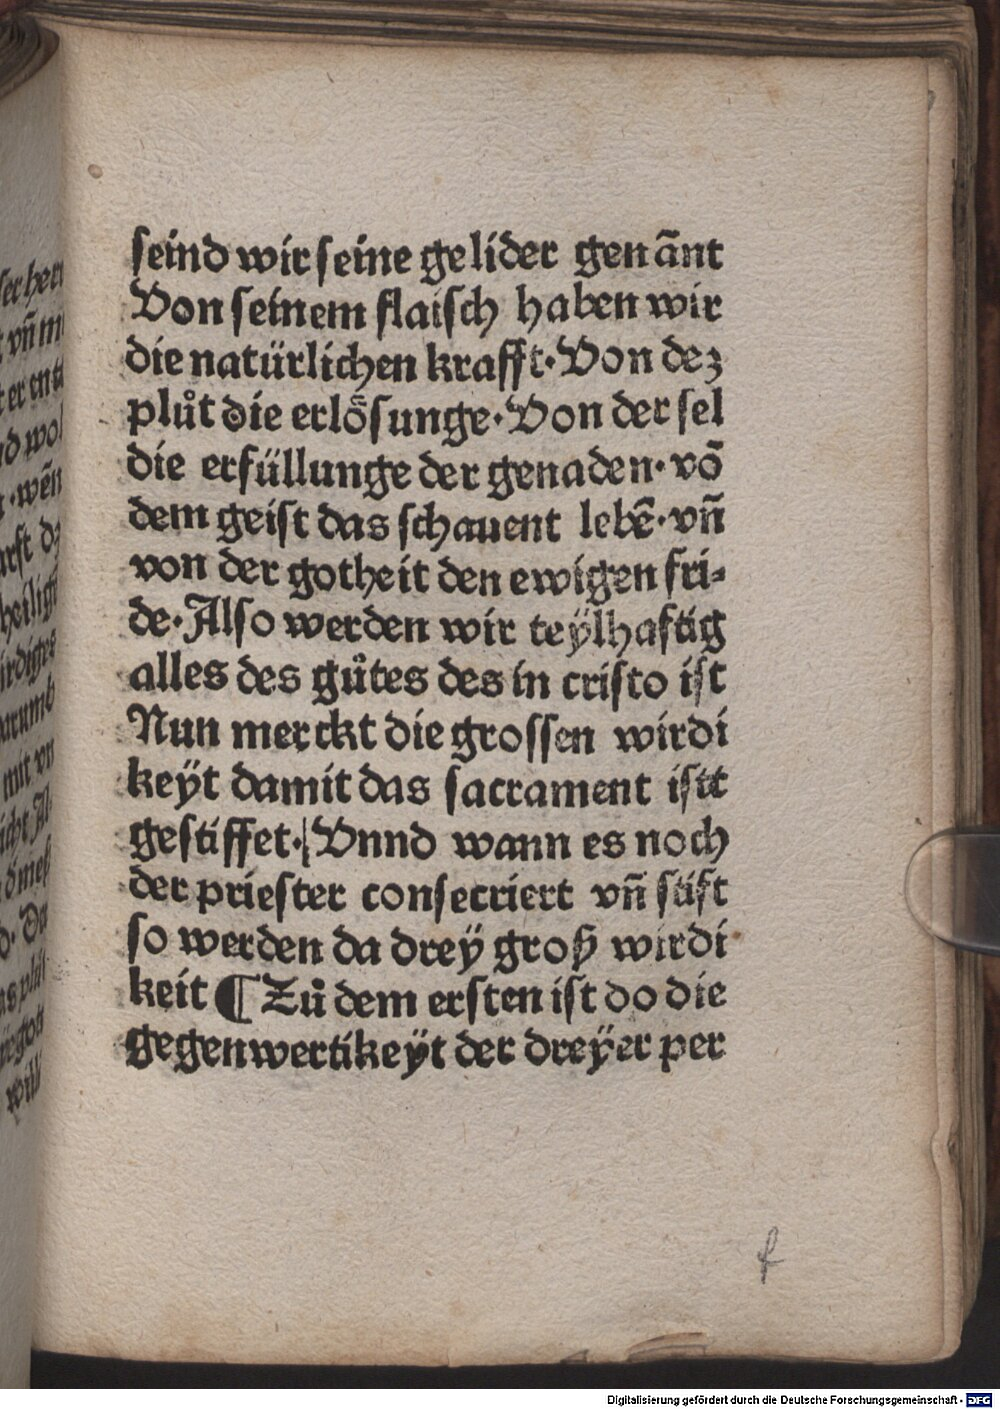 seind wir seine gelider genãnt
Von seinem flaisch haben wir
die natürlichen krafft. Von dez
plůt die erlösunge. Von der sel
die erfüllunge der genaden. võ
dem geist das schauent lebẽ. vñ
von der gotheit den ewigen fri-
de. Also werden wir teÿlhafftig
alles des gůtes des in cristo ist
Nun merckt die grossen wirdi
keÿt damit das sacrament istt
gestiffet. Vnnd wann es noch
der priester consecriert vñ stift
so werden da dreÿ groß wirdi
keit ¶ Zů dem ersten ist do die
gegenwertikeÿt der dreÿer per
f
Digitalisierung gefördert durch die Deutsche Forschungsgemeinschaft - DFG